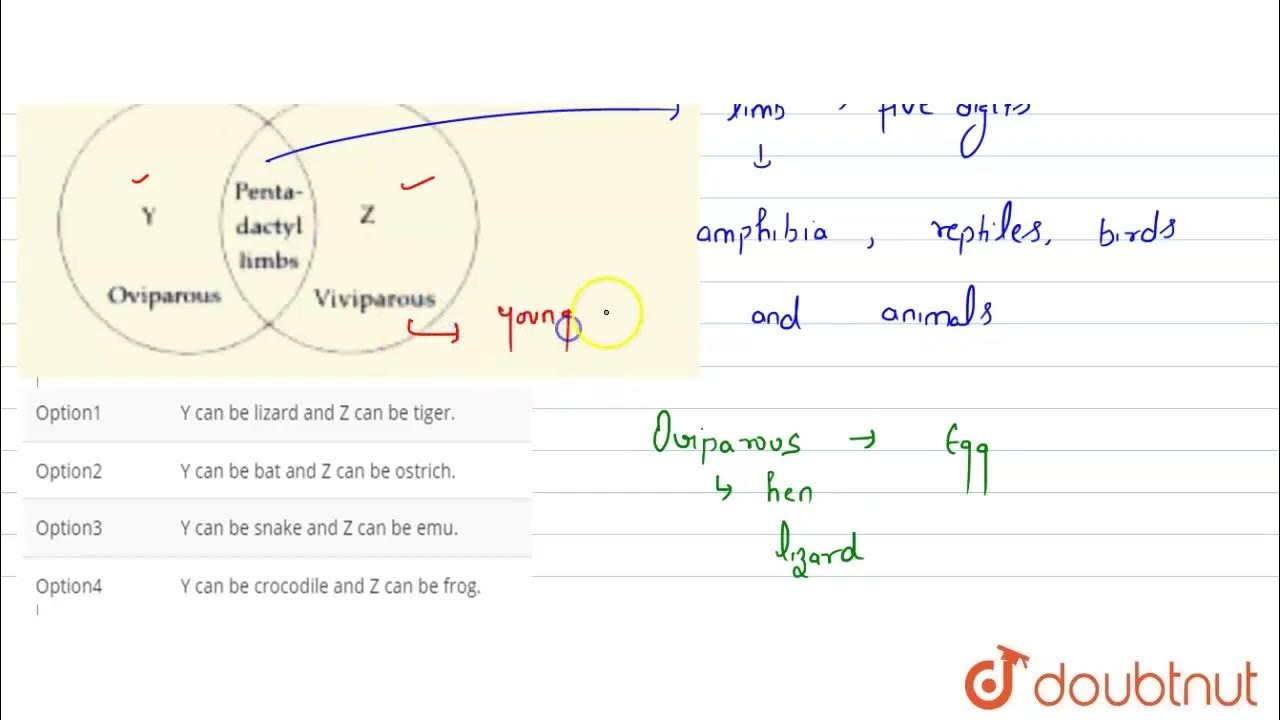 limb , five digits
Y
Penta-
dactyl
limbs
Z
Oviparous
Viviparous
young
amphibia , reptiles, birds
and animals
Option1 Y can be lizard and Z can be tiger.
Option2 Y can be bat and Z can be ostrich.
Option3 Y can be snake and Z can be emu.
Option4 Y can be crocodile and Z can be frog.
Oviparous → Egg
↳ hen
lizard
doubtnut